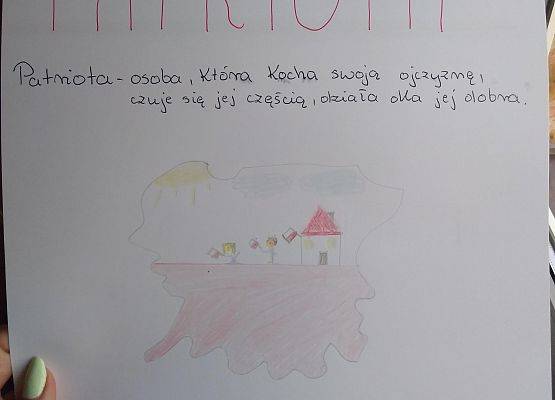 PATRIOTA
Patriota - osoba, która kocha swoją ojczyznę,
czuje się jej częścią, działa dla jej dobra.